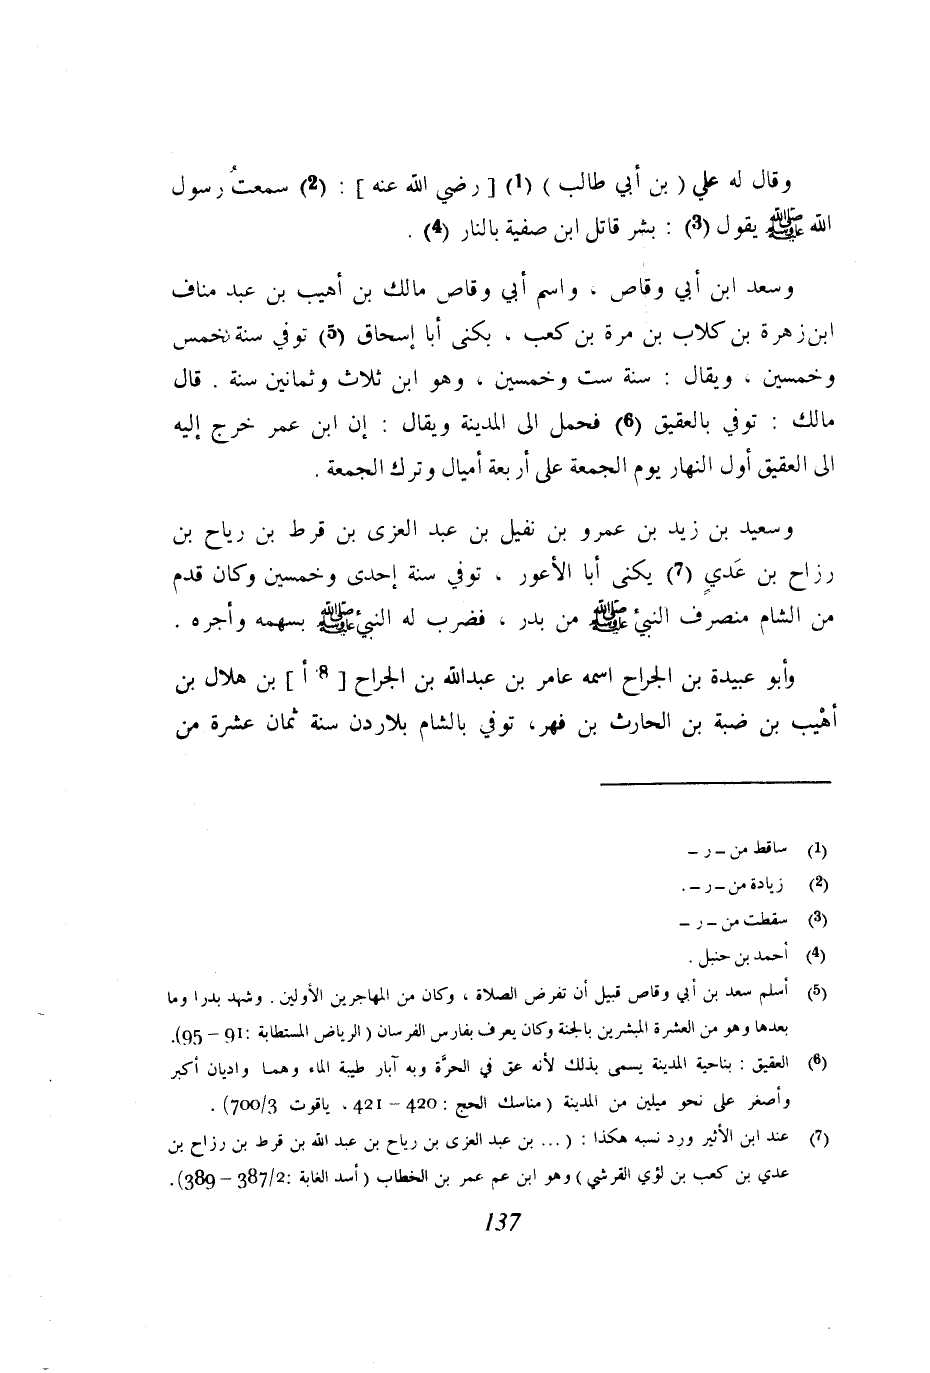 وقال له علي ( بن أبي طالب ) (1) [ رضي الله عنه ] : (2) سمعتُ رسول
الله ﷺ يقول (3) : بشر قاتل ابن صفية بالنار (4) .
وسعد ابن أبي وقاص ، واسم أبي وقاص مالك بن أهيب بن عبد مناف
ابن زهرة بن كلاب بن مرة بن كعب ، يكنى أبا إسحاق (5) توفي سنة خمس
وخمسين ، ويقال : سنة ست وخمسين ، وهو ابن ثلاث وثمانين سنة . قال
مالك : توفي بالعقيق (6) فحمل الى المدينة ويقال : إن ابن عمر خرج إليه
الى العقيق أول النهار يوم الجمعة على أربعة أميال وترك الجمعة .
وسعيد بن زيد بن عمرو بن نفيل بن عبد العزى بن قرط بن رياح بن
رزاح بن عَديٍ (7) يكنى أبا الأعور ، توفي سنة إحدى وخمسين وكان قدم
من الشام منصرف النبيْ ﷺ من بدر ، فضرب له النبيْ ﷺ بسهمه وأجره .
وأبو عبيدة بن الجراح اسمه عامر بن عبدالله بن الجراح [ 8 أ ] بن هلال بن
أهْيب بن ضبة بن الحارث بن فهر، توفي بالشام بلاردن سنة ثمان عشرة من
(1) ساقط من – ر –
(2) زيادة من – ر – .
(3) سقطت من – ر –
(4) أحمد بن حنبل .
(5) أسلم سعد بن أبي وقاص قبيل أن تفرض الصلاة ، وكان من المهاجرين الأولين . وشهد بدرا وما
بعدها وهو من العشرة المبشرين بالجنة وكان يعرف بفارس الفرسان ( الرياض المستطابة :91 – 95).
(6) العقيق : بناحية المدينة يسمى بذلك لأنه عق في الحرَّة وبه آبار طيبة الماء وهما واديان أكبر
وأصغر على نحو ميلين من المدينة ( مناسك الحج : 420 – 421 ، ياقوت 700/3) .
(7) عند ابن الأثير ورد نسبه هكذا : ( ... بن عبد العزى بن رياح بن عبد الله بن قرط بن رزاح بن
عدي بن كعب بن لؤي القرشي ) وهو ابن عم عمر بن الخطاب ( أسد الغابة :387/2 – 389).
137